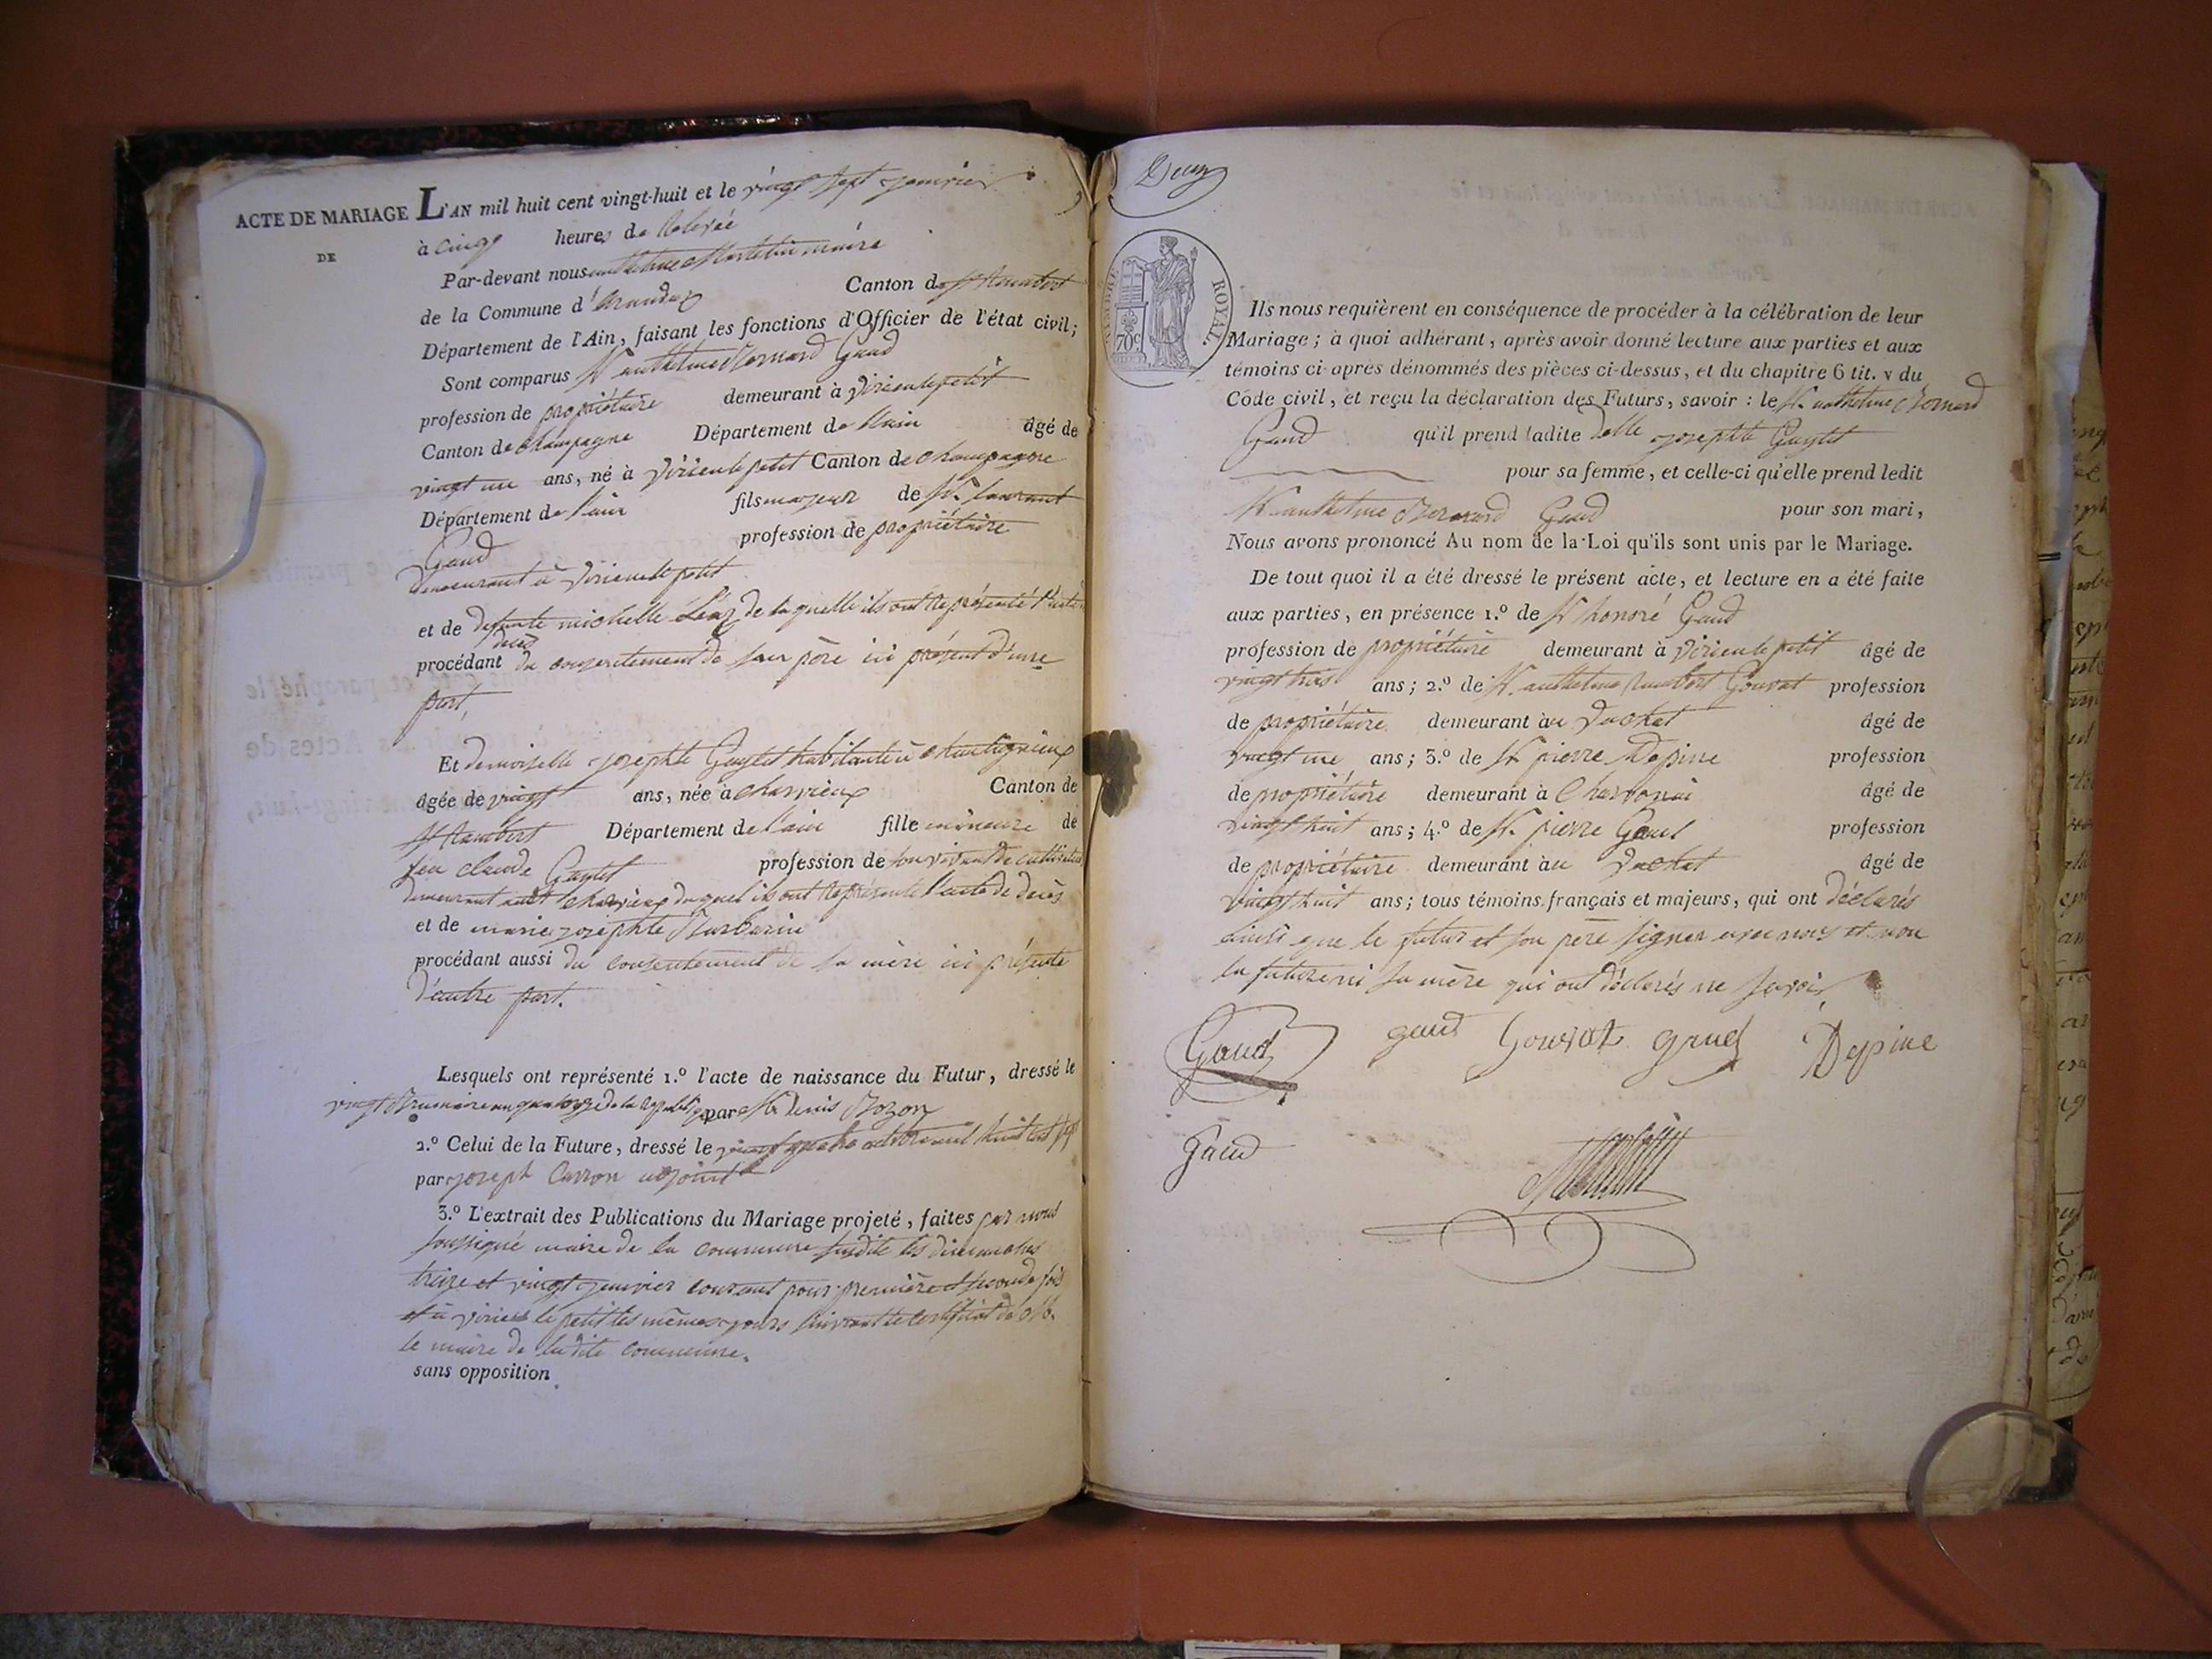 ACTE DE MARIAGE
DE
L'AN mil huit cent vingt-huit et le vingt sept janvier
à cinq heures de Relevée
Par-devant nous anthelme Martelin maire
de la Commune d'Arandaz Canton de St Rambert
Département de l'Ain, faisant les fonctions d'Officier de l'état civil;
Sont comparus Sr anthelme Bernard Gaud
profession de propriétaire demeurant à Virieu le petit
Canton de Champagne Département de l'ain âgé de
vingt un ans, né à Virieu le petit Canton de Champagne
Département de l'ain fils majeur de Sr. laurant
Gaud profession de propriétaire
demeurant à Virieu le petit
et de defunte michelle de laquelle ils ont représenté l'acte
décès
procédant du consentement de son père ici présent d'une
part,
Et demoiselle josephte Guylet habitante à
âgée de vingt ans, née à charvieux Canton de
St Rambert Département de l'ain fille mineure de
feu claude Guylet profession de son vivant de cultivateur
demeurant audt charvieux duquel ils ont représenté l'acte de décès
et de marie josephte
procédant aussi du consentement de sa mère ici présente
d'autre part.
Lesquels ont représenté 1.º l'acte de naissance du Futur, dressé le
vingt Brumaire an quatorze de la par Mr denis Bozon
2.º Celui de la Future, dressé le vingt quatre octobre mil huit cent sept
par joseph Carron adjoint
3.º L'extrait des Publications du Mariage projeté, faites par nous
soussigné maire de la commune susdite les dimanches
treize et vingt janvier courant pour première et seconde fois
et à virieu le petit les mêmes jours suivant le certificat de Mr.
le maire de ladite commune.
sans opposition
Deux
TIMBRE ROYAL
70c
Ils nous requièrent en conséquence de procéder à la célébration de leur
Mariage; à quoi adhérant, après avoir donné lecture aux parties et aux
témoins ci-après dénommés des pièces ci-dessus, et du chapitre 6 tit. v du
Code civil, et reçu la déclaration des Futurs, savoir: le Sr. anthelme Bernard
Gaud qu'il prend ladite delle josephte Guylet
pour sa femme, et celle-ci qu'elle prend ledit
Sr anthelme Bernard Gaud pour son mari,
Nous avons prononcé Au nom de la Loi qu'ils sont unis par le Mariage.
De tout quoi il a été dressé le présent acte, et lecture en a été faite
aux parties, en présence 1.º de Sr honoré Gaud
profession de propriétaire demeurant à Virieu le petit âgé de
vingt trois ans; 2.º de Sr. anthelme Rambert Gouvat profession
de propriétaire demeurant au Vachat âgé de
vingt un ans; 3.º de Sr pierre Depine profession
de propriétaire demeurant à âgé de
vingt huit ans; 4.º de Sr. pierre Gaud profession
de propriétaire demeurant au Vachat âgé de
vingt huit ans; tous témoins français et majeurs, qui ont déclarés
ainsi que le futur et son père signer avec nous et non
la future ni sa mère qui ont déclarés ne savoir
Gaud gaud Gouvat gaud Depine
Gaud